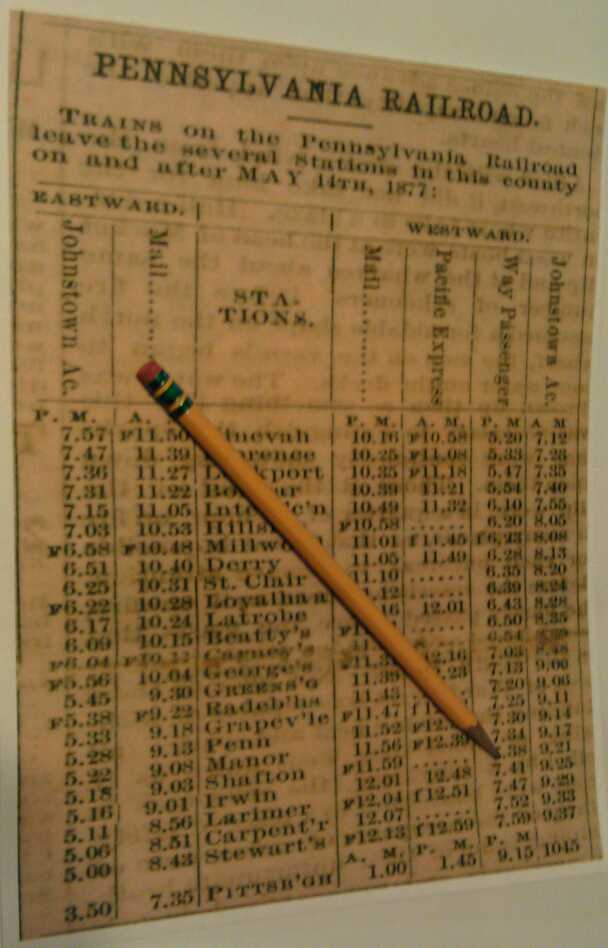 PENNSYLVANIA RAILROAD.
TRAINS on the Pennsylvania Railroad
leave the several Stations in this county
on and after MAY 14TH, 1877:
EASTWARD. WESTWARD.
Johnstown Ac. Mail....... STA-TIONS. Mail........... Pacific Express Way Passenger Johnstown Ac.
P. M. A. P. M. A. M. P. M A M
7.57 F11.50 10.16 F10.58 5.20 7.12
7.47 11.39 10.25 F11.08 5.33 7.23
7.36 11.27 10.35 F11.18 5.47 7.35
7.31 11.22 10.39 11.21 5.54 7.40
7.15 11.05 10.49 11.32 6.10 7.55
7.03 10.53 F10.58 ...... 6.20 8.05
F6.58 F10.48 11.01 f11.45 f6.23 8.08
6.51 10.40 Derry 11.05 11.49 6.28 8.13
6.25 10.31 St. Clair 11.10 ...... 6.35 8.20
F6.22 10.28 ...... 6.39 8.24
6.17 10.24 Latrobe 12.01 6.43 8.28
6.09 10.15 Beatty's ...... 6.50 8.35
F6.04 Carney's 6.54 8.39
F5.56 10.04 George's 7.03 8.48
5.45 9.30 GREENS'G 11.39 7.13 9.00
F5.38 F9.22 Radeb'hs 11.43 7.20 9.06
5.33 9.18 Grapev'le F11.47 7.25 9.11
5.28 9.13 Penn 11.52 7.30 9.14
5.22 9.08 Manor 11.56 F12.39 7.34 9.17
5.18 9.03 Shafton F11.59 ...... 9.21
5.16 9.01 Irwin 12.01 12.48 7.41 9.25
5.11 8.56 Larimer F12.04 f12.51 7.47 9.29
5.06 8.51 Carpent'r 12.07 ...... 7.52 9.33
5.00 8.43 Stewart's F12.13 f12.59 7.59 9.37
A. M. P. M. P. M
3.50 7.35 PITTSB'GH 1.00 1.45 9.15 1045